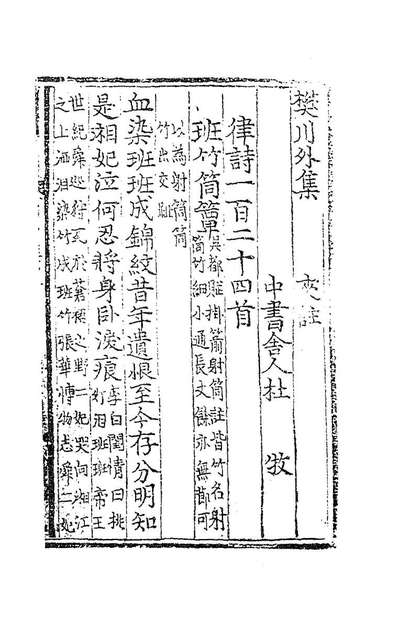 樊川外集　夾註
中書舍人杜　牧
律詩一百二十四首
班竹筒簟吳都賦掛箭射筒註皆竹名射
筒竹細小通長丈餘亦無節可
以為射筒筒
竹出交趾
血染班班成錦紋昔年遺恨至今存分明知
是湘妃泣何忍將身臥淚痕李白閨情曰挑
灯泪班班帝王
世紀舜巡狩死於蒼梧之野二妃哭向湘江
之上洒泪染竹成班竹張華博物志舜二妃